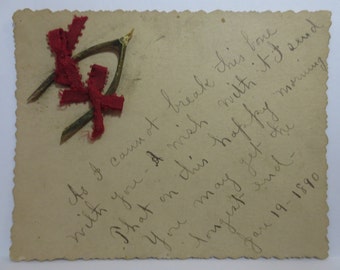 As I cannot break this bone
with you - I wish with it I send
That on this happy morning
You may get the
longest end -
Jan 19 - 1890